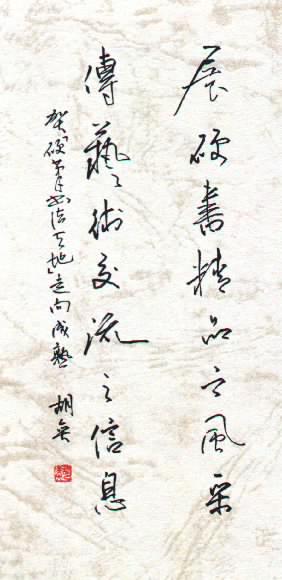 展硬書精品之風采
傳藝術交流之信息
賀硬筆書法天地」走向成熟 胡